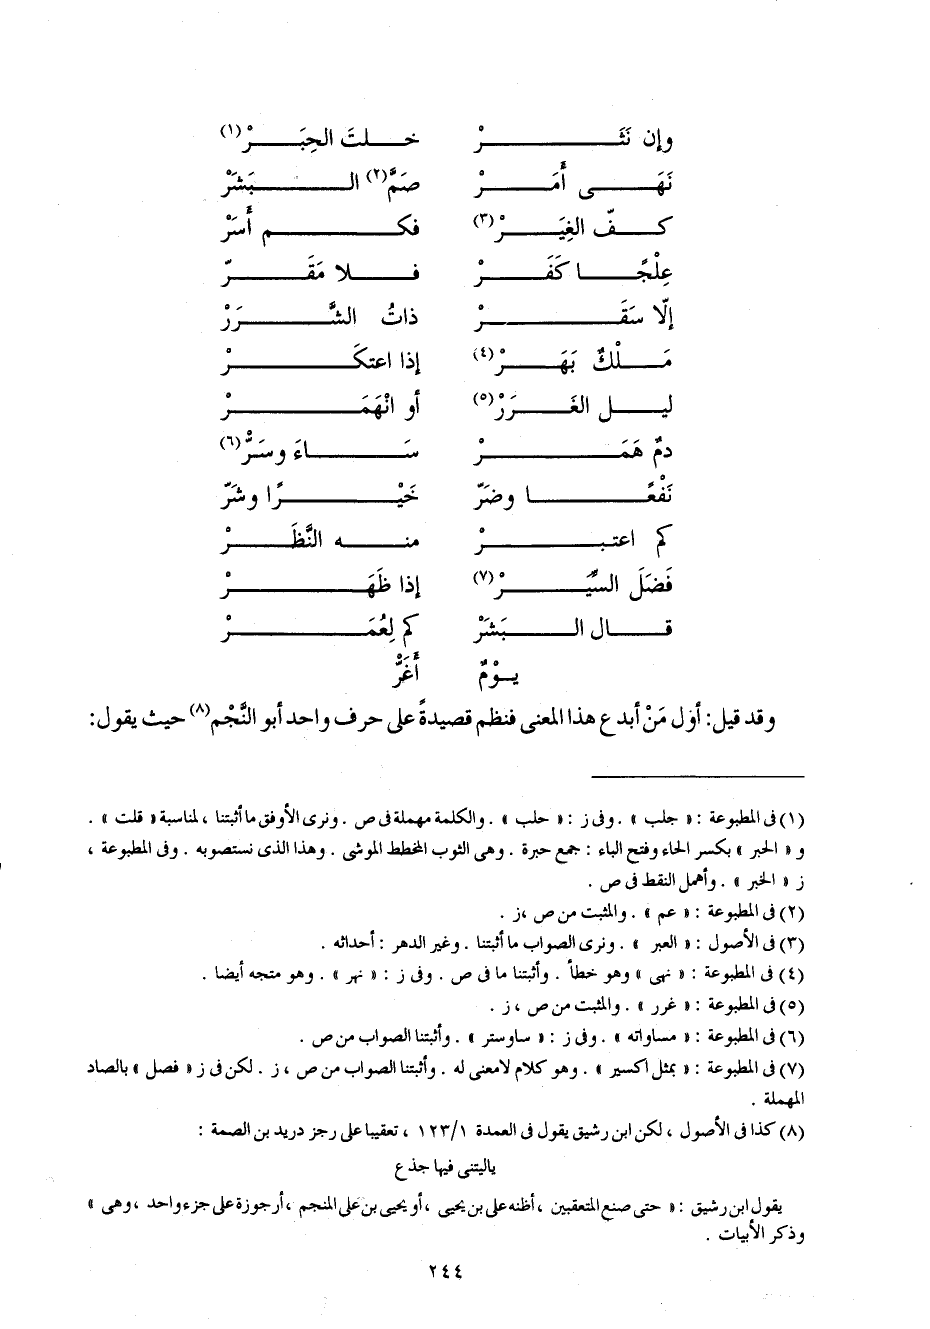 وإن نَثَرْ خلتَ الحِبَرْ(١)
نَهَى أَمَرْ صَمَّ(٢) البَشَرْ
كفّ الغِيَرْ(٣) فكم أَسَرْ
عِلْجًا كَفَرْ فلا مَقَرّ
إلّا سَقَرْ ذاتُ الشَّرَرْ
مَلْكٌ بَهَرْ(٤) إذا اعتكَرْ
ليل الغَرَرْ(٥) أو انْهَمَرْ
دمٌ هَمَرْ سَاءَ وسَرَّْ(٦)
نَفْعًا وضَرّ خَيْرًا وشَرّ
كم اعتبرْ منه النَّظَرْ
فَضَلَ السِّيَرْ(٧) إذا ظَهَرْ
قال البَشَرْ كم لِعُمَرْ
يوْمٌ أَغَرَّْ
وقد قيل: أوّل مَنْ أبدع هذا المعنى فنظم قصيدةً على حرف واحد أبو النَّجْم(٨) حيث يقول:
(١) فى المطبوعة : « جلب » . وفى ز : « حلب » . والكلمة مهملة فى ص . ونرى الأوفق ما أثبتنا ، لمناسبة « قلت » .
و « الحبر » بكسر الحاء وفتح الباء : جمع حبرة . وهى الثوب المخطط الموشى . وهذا الذى نستصوبه . وفى المطبوعة ،
ز « الخبر » . وأهمل النقط فى ص .
(٢) فى المطبوعة : « عم » . والمثبت من ص ،ز .
(٣) فى الأصول : « العبر » . ونرى الصواب ما أثبتنا . وغير الدهر : أحداثه .
(٤) فى المطبوعة : « نهى » وهو خطأ . وأثبتنا ما فى ص . وفى ز : « نهر » . وهو متجه أيضا .
(٥) فى المطبوعة : « غرر » . والمثبت من ص ، ز .
(٦) فى المطبوعة : « مساواته » . وفى ز : « ساوستر » . وأثبتنا الصواب من ص .
(٧) فى المطبوعة : « بمثل اكسير » . وهو كلام لامعنى له . وأثبتنا الصواب من ص ، ز . لكن فى ز « فصل » بالصاد
المهملة .
(٨) كذا فى الأصول ، لكن ابن رشيق يقول فى العمدة ١٢٣/١ ، تعقيبا على رجز دريد بن الصمة :
ياليتنى فيها جذع
يقول ابن رشيق : « حتى صنع المتعقبين ، أظنه على بن يحيى ، أو يحيى بن على المنجم ، أرجوزة على جزء واحد ، وهى »
وذكر الأبيات .
٢٤٤